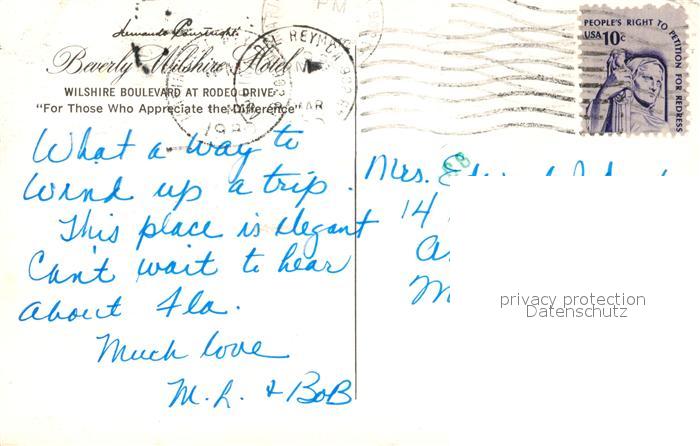 Hernando Courtright's
Beverly Wilshire Hotel
WILSHIRE BOULEVARD AT RODEO DRIVE
"For Those Who Appreciate the Difference"
What a way to
wind up a trip.
This place is elegant
Can't wait to hear
about Fla.
Much love
M. L. & BoB
PM
PEOPLE'S RIGHT TO PETITION FOR REDRESS
USA 10c
Mrs.
14
privacy protection
Datenschutz